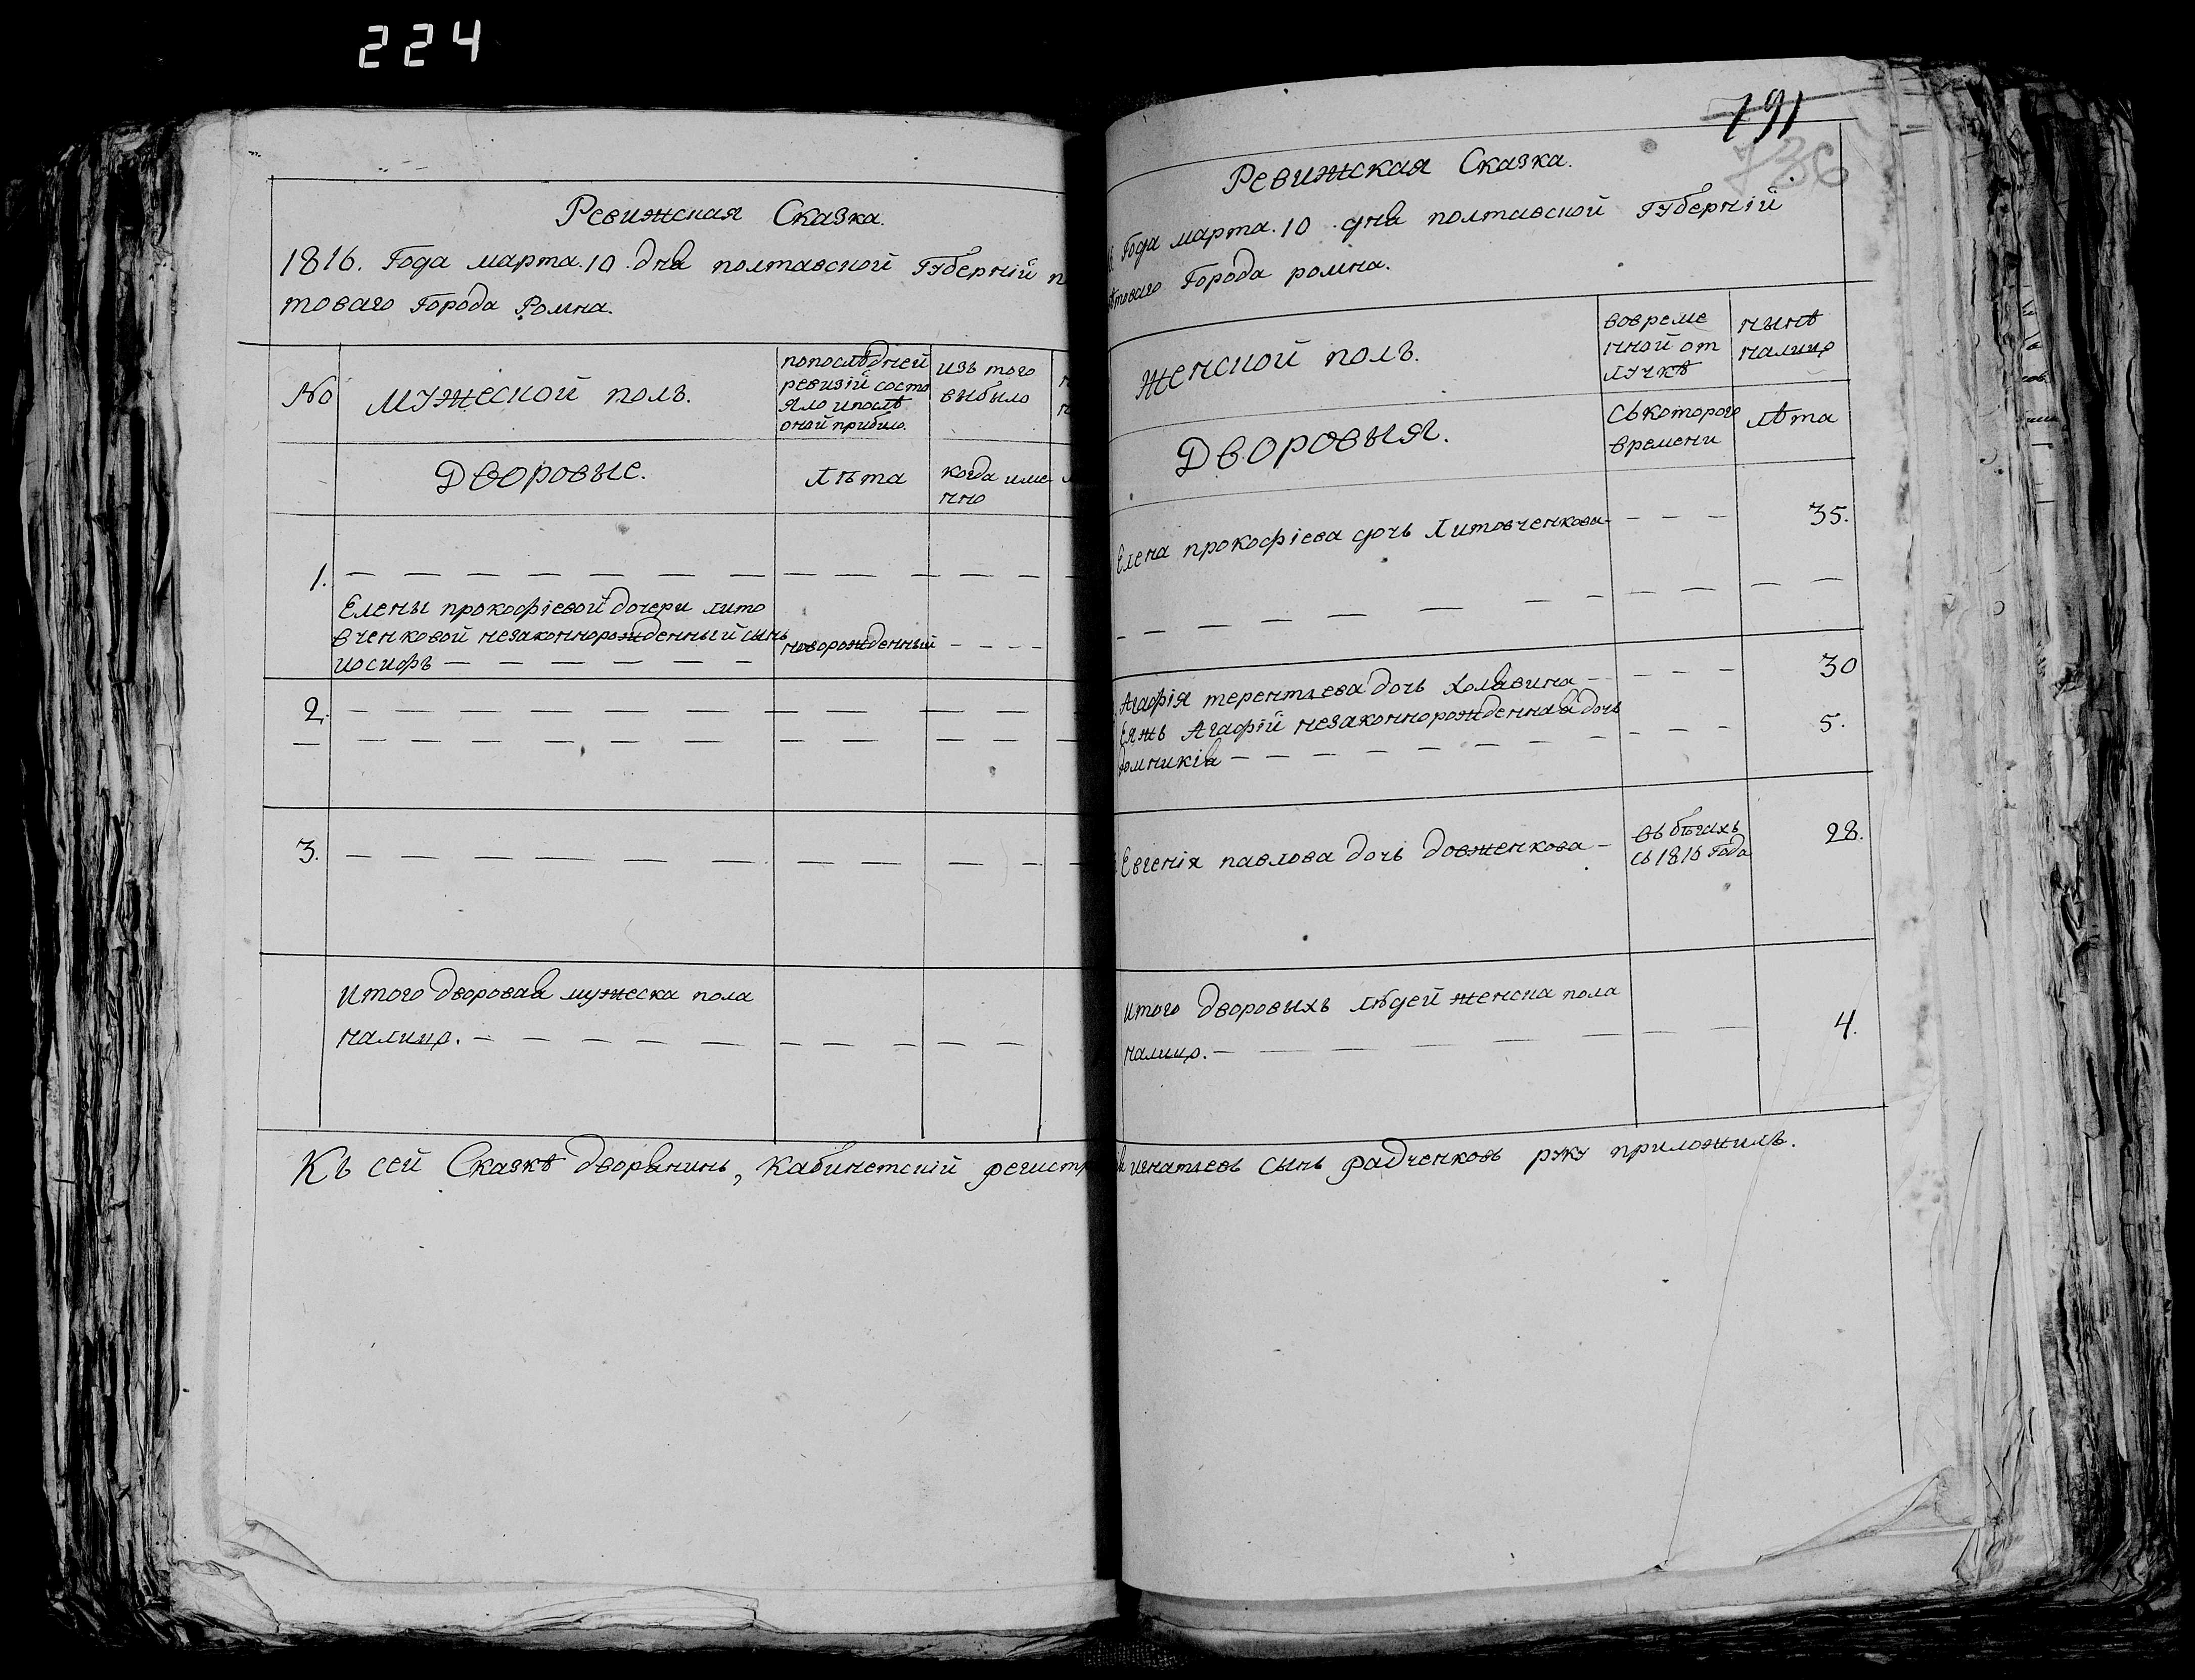 224
Ревижская Сказка.
1816. Года марта. 10. дня полтавской Губерніи
товаго Города Ромна.
No
мужеской полъ.
попослѣдней
ревизіи состо
яло ипослѣ
оной прибыло.
изъ того
выбыло
Дворовые.
Лѣта
когда име
нно
1.
Елены прокофіевой дочери лито
вченковой незаконнорожденный сынъ
иосифъ
новорожденный
2.
3.
Итого дворовая мужеска пола
налицо.
Къ сей Сказкѣ дворянинъ, Кабинетскій регистр
791
736
Ревижская Сказка.
Года марта. 10 дня полтавской Губерніи
товаго Города ромна.
Женской полъ.
вовреме
нной от
лучкѣ
нынѣ
налицо
Дворовыя.
съкотораго
времени
лѣта
Елена прокофіева дочь Литовченкова
35.
Агафія терентьева дочь
30
Агафіи незаконнорожденная дочь
5.
Евгенія павлова дочь довженкова
въ бѣгахъ
съ 1816 Года
28.
Итого дворовыхъ людей женска пола
налицо.
4.
игнатьевъ сынъ радченковъ руку приложилъ.